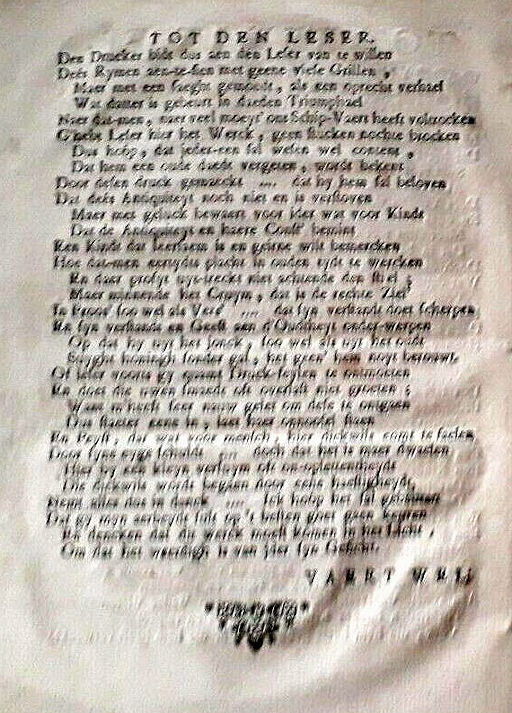 TOT DEN LESER.
Den Drucker bids dus aen den Leser van te willen
Dees Rymen aen-te-sien met geene viese Grillen,
Maer met een saeght gemoedt, als een oprecht verhael
Wat datter is gebeurt in daeden Triumphael
Naer dat-men, naer veel moeyt' ons Schip-Vaert heeft voltrocken
G'hebt Leser hier het Werck, geen stucken nochte brocken
Dus hoop, dat jeder-een sal wesen wel content,
Dat hem een oude daedt vergeten, wordt bekent
Door desen druck gemaeckt .... dat hy hem sal beloven
Dat dees Antiquiteyt noch niet en is verstoven
Maer met geluck bewaert voor ider wat voor Kindt
Dat de Antiquiteyt en haere Const bemint
Een Kindt dat leersaem is en geirne wilt bemercken
Hoe dat-men eertydts placht in ouden tydt te wercken
En daer profyt uyt-treckt niet achtende den stiel,
Maer minnende het Gruym, dat is de rechte Ziel
In Proos' soo wel als Vers' .... dat syn verstandt doet scherpen,
En syn verstandt en Geest aen d'Oudtheyt onder-werpen
Op dat hy uyt het jonck, soo wel als uyt het oudt
Suyght honingh sonder gal, het geen' hem noyt berouwt,
Of ieder voorts gy quaemt Druck-feylen te ontmoeten
En doet die uwen
Want m'heeft seer nauw gelet om dese te ontgaen
Dus
En Peyst, dat wat voor mensch, hier dickwils comt te faelen
Door syne eyge schuldt .... doch dat het is maer dwaelen
Hier by een kleyn versuym oft on-oplettentheydt
Die dickwils wordt begaen door eene haestigheydt,
Neemt alles dus in danck .... Ick hoop het sal gebeuren
Dat gy myn aerbeydt sult op't besten gaet geen keuren
En dencken dat dit werck moest komen in het licht,
Om dat het weerdigh is van jder syn Gesicht.
VAERT WEL